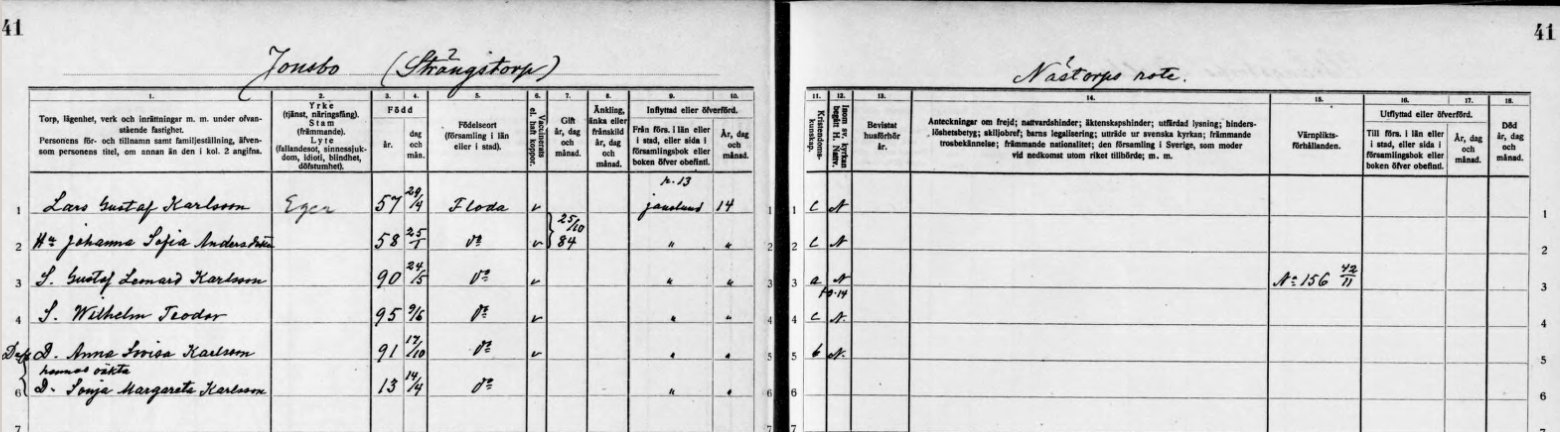 41
Jonsbo (Strängstorp)
1. 2. 3. 4. 5. 6. 7. 8. 9. 10.
Torp, lägenhet, verk och inrättningar m. m. under ofvan-
stående fastighet.
Personens för- och tillnamn samt familjeställning, äfven-
som personens titel, om annan än den i kol. 2 angifna.
Yrke
(tjänst, näringsfång).
Stam
(främmande).
Lyte
(fallandesot, sinnessjuk-
dom, idioti, blindhet,
döfstumhet).
Född
år.
dag
och
mån.
Födelseort
(församling i län
eller i stad).
Vaccinerats
el. haft koppor.
Gift
år, dag
och
månad.
Änkling,
änka eller
frånskild
år, dag
och
månad.
Inflyttad eller öfverförd.
Från förs. i län eller
i stad, eller sida i
församlingsbok eller
boken öfver obefintl.
År, dag
och
månad.
1 Lars Gustaf Karlsson Eger 57 29/4 Floda v 14 1
2 Hu Johanna Sofia Andersdotter 58 25/1 do v 25/10 84 " " 2
3 S. Gustaf Lennard Karlsson 90 24/5 do v " " 3
4 S. Wilhelm Teodor 95 9/6 do v " " 4
5 D. Anna Lovisa Karlsson 91 17/10 do v " " 5
hennes oäkta
6 D. Sonja Margareta Karlsson 13 14/4 do " " 6
7
41
Nästorps rote.
11. 12. 13. 14. 15. 16. 17. 18.
Kristendoms-
kunskap.
Inom sv. kyrkan
begått H. Nattv.
Bevistat
husförhör
år.
Anteckningar om frejd; nattvardshinder; äktenskapshinder; utfärdad lysning; hinders-
löshetsbetyg; skiljobref; barns legalisering; utträde ur svenska kyrkan; främmande
trosbekännelse; främmande nationalitet; den församling i Sverige, som moder
vid nedkomst utom riket tillhörde; m. m.
Värnplikts-
förhållanden.
Utflyttad eller öfverförd.
Till förs. i län eller
i stad, eller sida i
församlingsbok eller
boken öfver obefintl.
År, dag
och
månad.
Död
år, dag
och
månad.
1 c N 1
2 c N 2
3 a N No 156 42/11 3
4 c N. 4
5 b N. 5
6 6
7